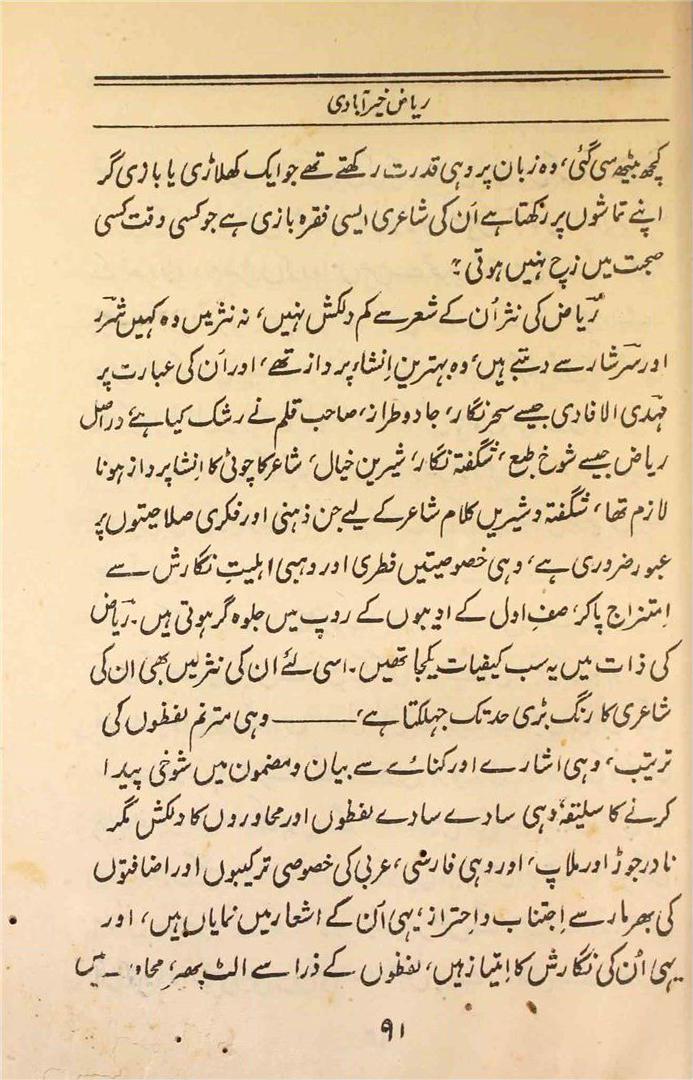 ریاض خیرآبادی
کچھ بیٹھ سی گئی، وہ زبان پر وہی قدرت رکھتے تھے جو ایک کھلاڑی یا بازی گر
اپنے تماشوں پر رکھتا ہے اُن کی شاعری ایسی فقرہ بازی ہے جو کسی وقت کسی
صحبت میں زچ نہیں ہوتی ؛
ریاضؔ کی نثر اُن کے شعر سے کم دلکش نہیں، نہ نثر میں وہ کہیں شررؔ
اور سرشارؔ سے دبتے ہیں، وہ بہترین اِنشاء پرداز تھے، اور اُن کی عبارت پر
مہدی الافادی جیسے سحر نگار، جادو طراز، صاحب قلم نے رشک کیا ہے، دراصل
ریاض جیسے شوخ طبع، شگفتہ نگار، شیرین خیال، شاعر کا چوٹی کا اِنشا پرداز ہونا
لازم تھا، شگفتہ و شیریں کلام شاعر کے لیے جن ذہنی اور فکری صلاحیتوں پر
عبور ضروری ہے، وہی خصوصیتیں فطری اور وہبی اہلیتِ نگارش سے
اِمتزاج پا کر، صفِ اول کے ادیبوں کے روپ میں جلوہ گر ہوتی ہیں۔ ریاضؔ
کی ذات میں یہ سب کیفیات یکجا تھیں۔ اسی لئے ان کی نثر میں بھی ان کی
شاعری کا رنگ بڑی حد تک جھلکتا ہے، ——— وہی مترنم لفظوں کی
ترتیب، وہی اشارے اور کنائے سے بیان و مضمون میں شوخی پیدا
کرنے کا سلیقہ، وہی سادے سادے لفظوں اور محاوروں کا دلکش مگر
نادر جوڑ اور ملاپ، اور وہی فارسی، عربی کی خصوصی ترکیبوں اور اضافتوں
کی بھرمار سے اِجتناب و احتراز؛ یہی اُن کے اشعار میں نمایاں ہیں، اور
یہی اُن کی نگارش کا اِمتیاز ہیں، لفظوں کے ذرا سے الٹ پھیر، میں
۹۱